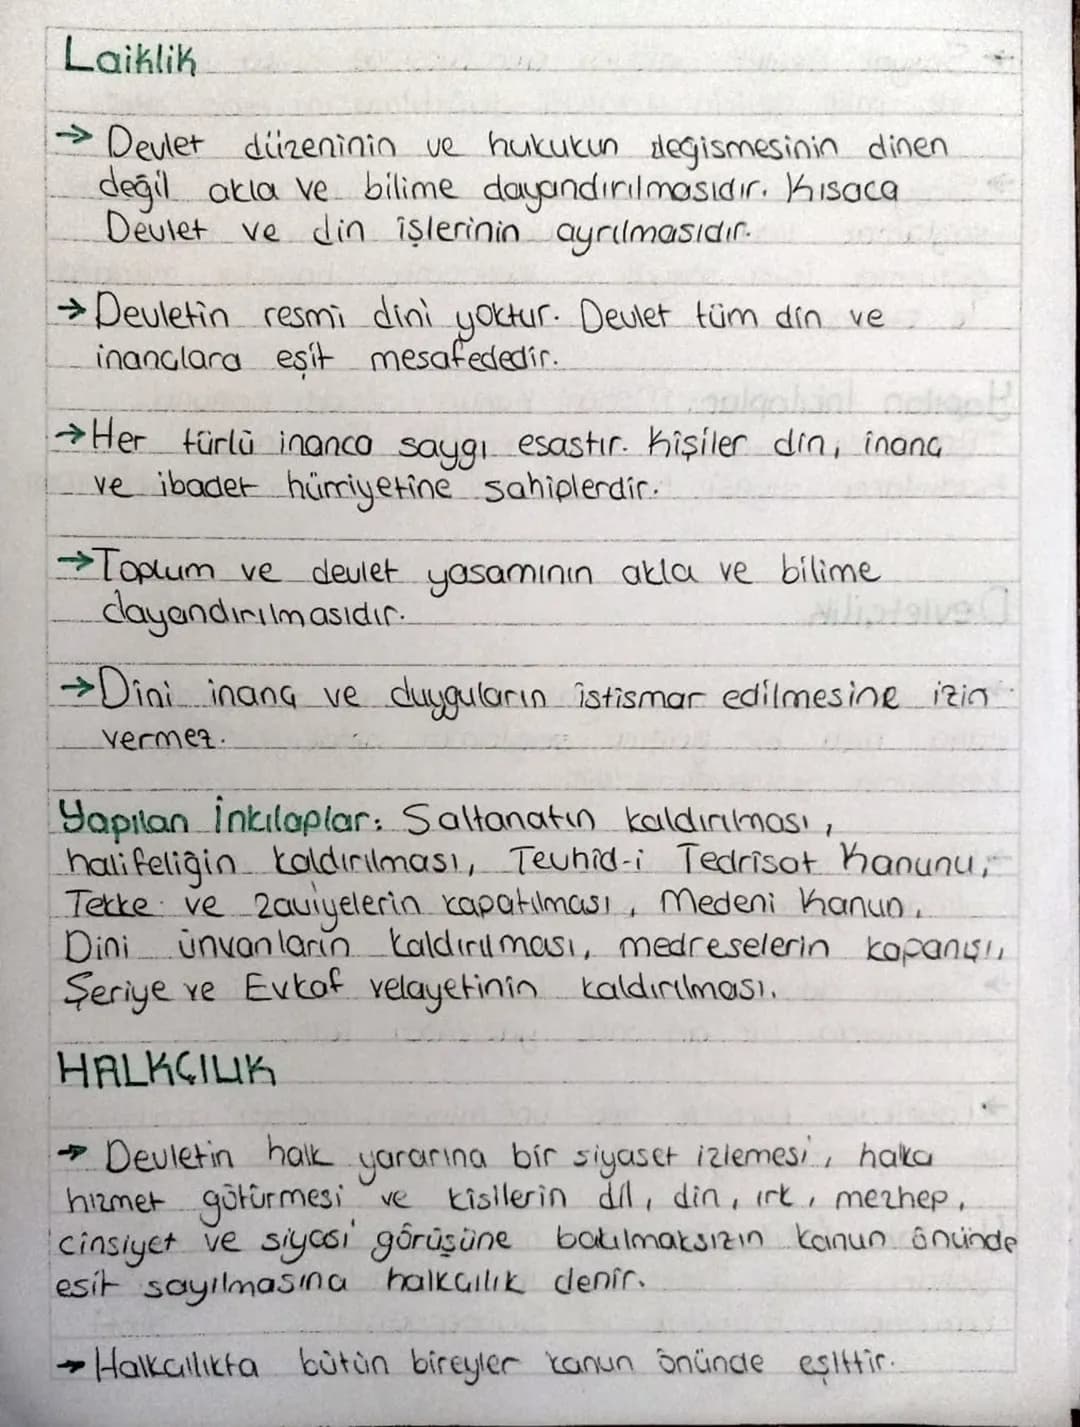 Laiklik
→ Devlet düzeninin ve hukukun değismesinin dinen
değil akla ve bilime dayandırılmasıdır. Kısaca
Devlet ve din işlerinin ayrılmasıdır.
→ Devletin resmi dini yoktur. Devlet tüm din ve
inançlara eşit mesafededir.
→ Her türlü inanca saygı esastır. Kişiler din, inanç
ve ibadet hürriyetine sahiplerdir.
→ Toplum ve devlet yasamının akla ve bilime
dayandırılmasıdır.
→ Dini inanç ve duyguların istismar edilmesine izin
vermez.
Yapılan İnkılaplar: Saltanatın kaldırılması,
halifeliğin kaldırılması, Tevhid-i Tedrisat Kanunu,
Tekke ve zaviyelerin kapatılması, Medeni Kanun,
Dini ünvanların kaldırılması, medreselerin kapanışı,
Şeriye ve Evkaf velayetinin kaldırılması.
HALKÇILIK
→ Devletin halk yararına bir siyaset izlemesi, halka
hizmet götürmesi ve kisilerin dil, din, ırk, mezhep,
cinsiyet ve siyasi görüşüne bakılmaksızın kanun önünde
esit sayılmasına halkçılık denir.
→ Halkçılıkta bütün bireyler kanun önünde eşittir.